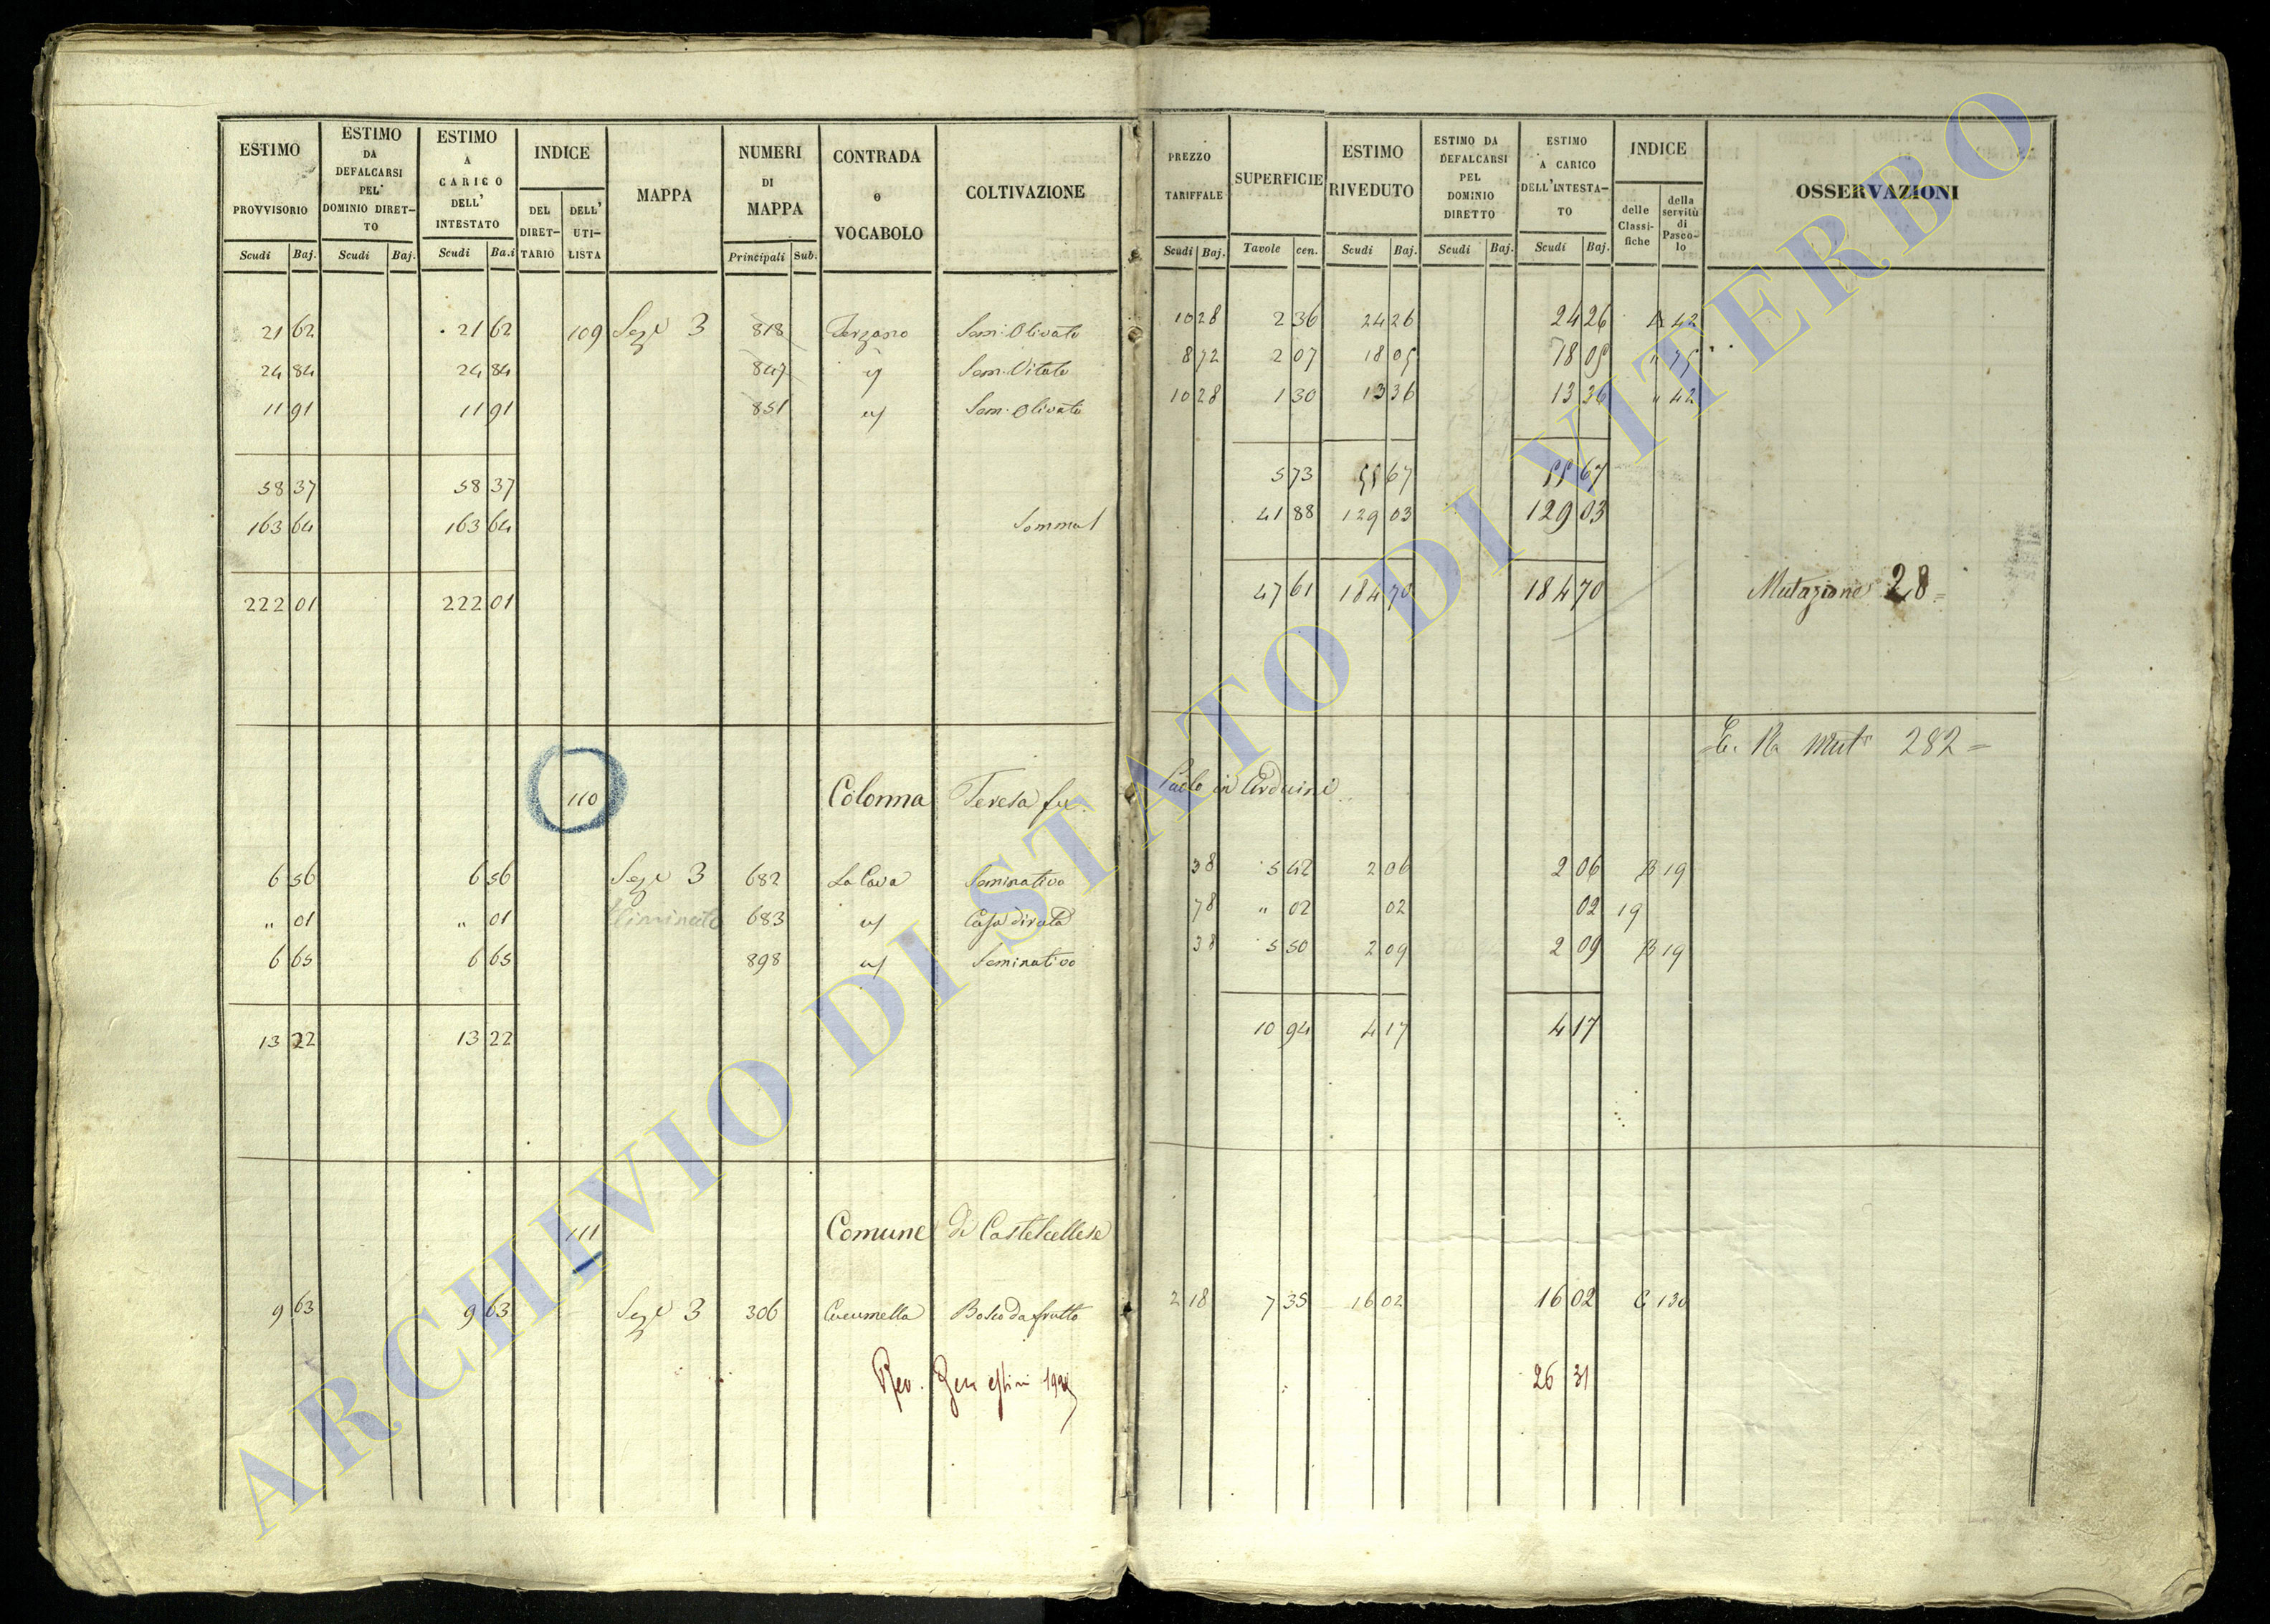 ESTIMO PROVVISORIO
ESTIMO DA DEFALCARSI PEL' DOMINIO DIRET-TO
ESTIMO A CARICO DELL' INTESTATO
INDICE
DEL DIRET-TARIO
DELL' UTI-LISTA
MAPPA
NUMERI DI MAPPA
CONTRADA o VOCABOLO
COLTIVAZIONE
PREZZO TARIFFALE
SUPERFICIE
ESTIMO RIVEDUTO
ESTIMO DA DEFALCARSI PEL DOMINIO DIRETTO
ESTIMO A CARICO DELL'INTESTA-TO
INDICE
delle Classi-fiche
della servitù di Pasco-lo
OSSERVAZIONI
Scudi Baj. Scudi Baj. Scudi Ba.i Principali Sub. Scudi Baj. Tavole cen. Scudi Baj. Scudi Baj. Scudi Baj.
21 62 21 62 109 Sez. 3 818 Terzano Sem. Olivato 10 28 2 36 24 26 24 26 42
24 84 24 84 847 Sem. Vitato 8 72 2 07 18 05 18 05 " 75
11 91 11 91 851 Sem. Olivato 10 28 1 30 13 36 13 36 " 42
58 37 58 37 5 73 55 67 55 67
163 64 163 64 Somma 41 88 129 03 129 03
222 01 222 01 47 61 184 70 184 70 Mutazione 28
282
110 Colonna Teresa fu Paolo in Arduini
6 56 6 56 Sez. 3 682 La Cava Seminativo 38 5 42 2 06 2 06 B 19
" 01 " 01 Eliminato 683 Casa diruta 78 " 02 02 02 19
6 65 6 65 898 Seminativo 38 5 50 2 09 2 09 B 19
13 22 13 22 10 94 4 17 4 17
111 Comune di Castelcellese
9 63 9 63 Sez. 3 306 Cucumella Bosco da frutto 2 18 7 35 16 02 16 02 130
Rev. Gen estimi 26 31
ARCHIVIO DI STATO DI VITERBO